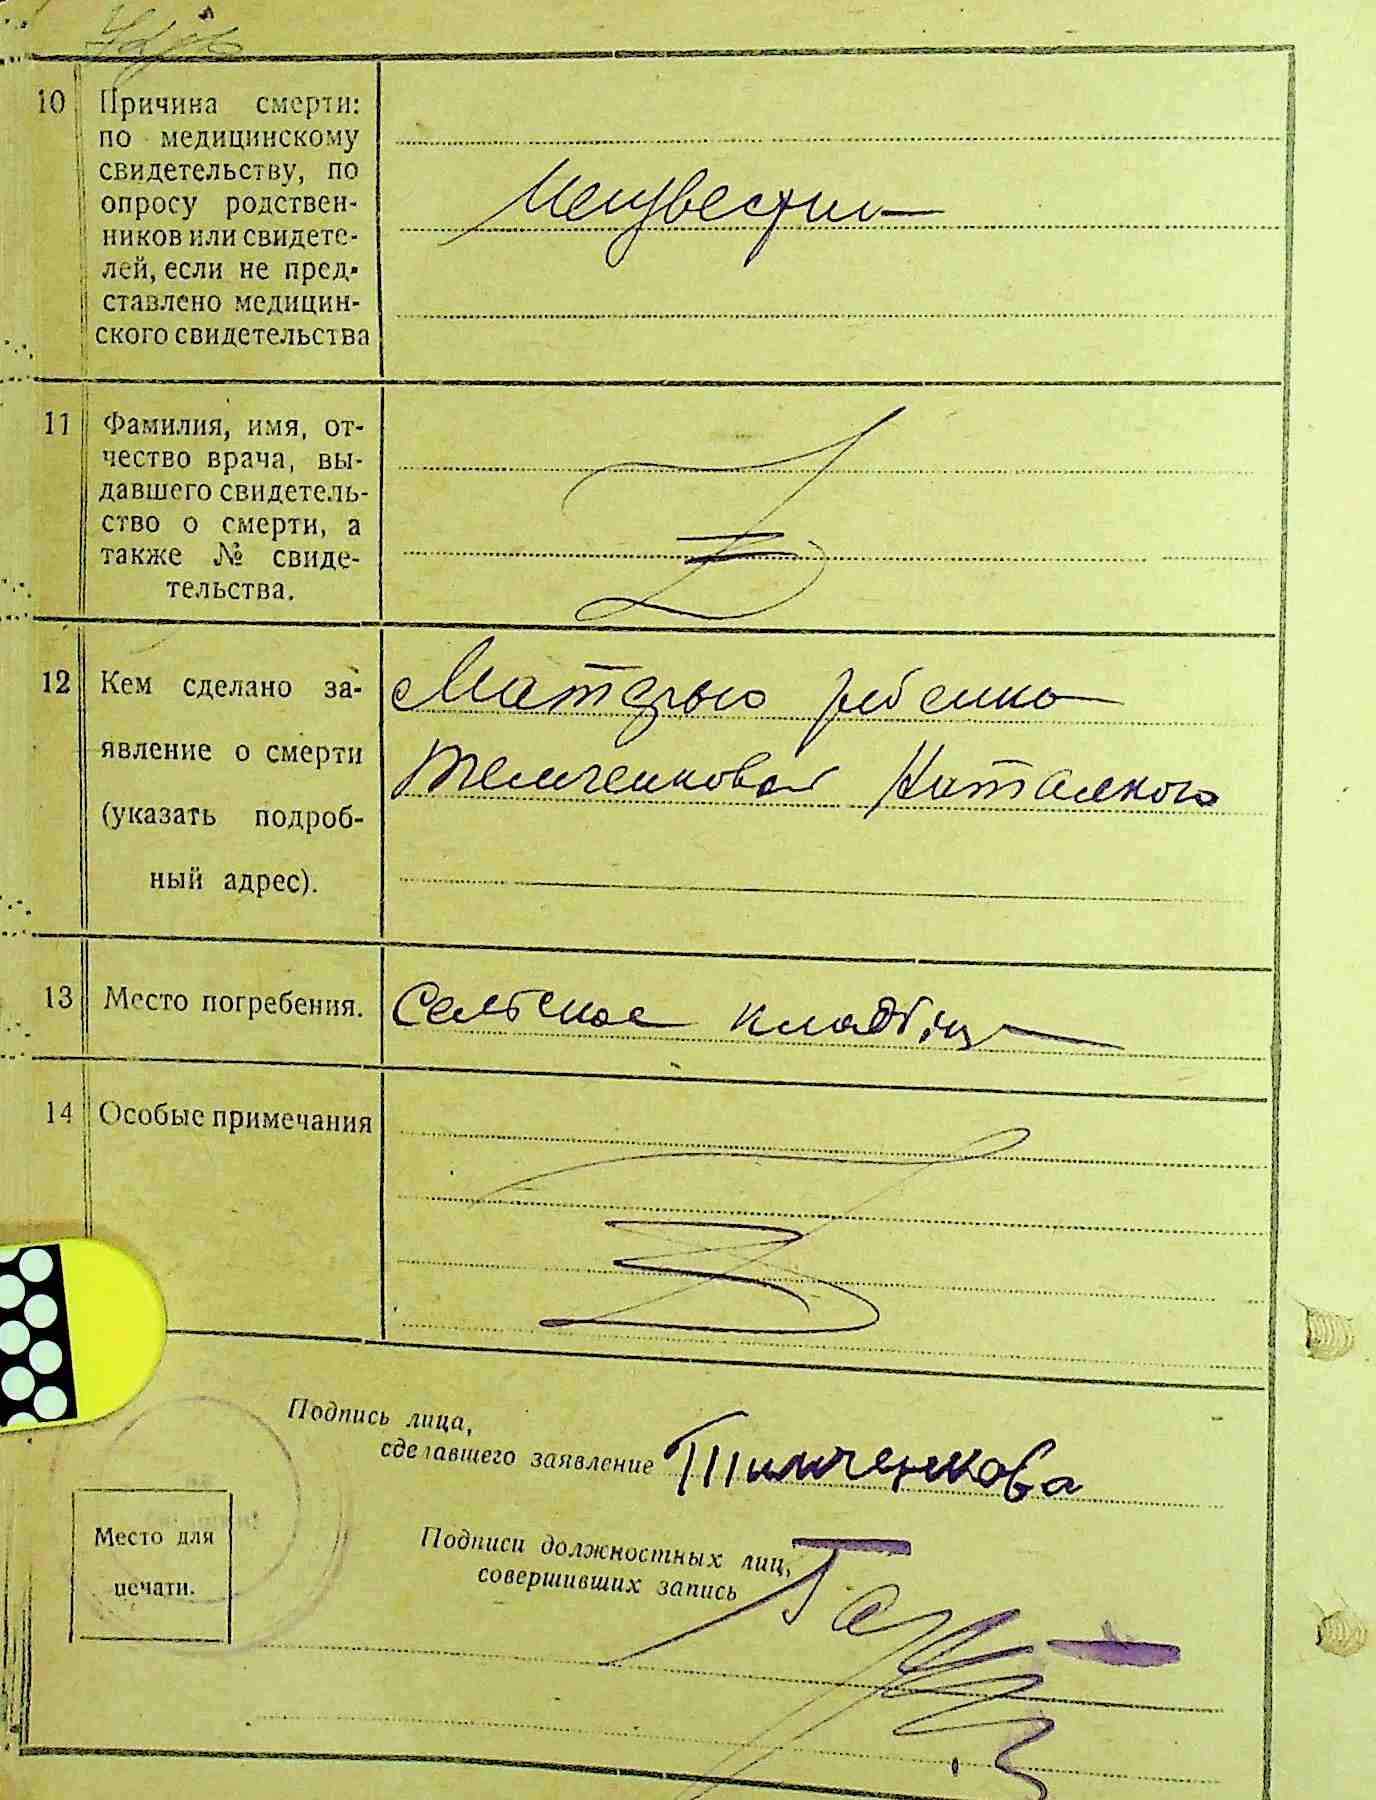 10 Причина смерти:
по медицинскому
свидетельству, по
опросу родствен-
ников или свидете-
лей, если не пред-
ставлено медицин-
ского свидетельства
Неизвестна
11 Фамилия, имя, от-
чество врача, вы-
давшего свидетель-
ство о смерти, а
также № свиде-
тельства.
12 Кем сделано за-
явление о смерти
(указать подроб-
ный адрес).
Матерью ребенка
Темченковой Наталкою
13 Место погребения.
Сельское кладбище
14 Особые примечания
Подпись лица,
сделавшего заявление Тимченкова
Подписи должностных лиц,
совершивших запись
Место для
печати.